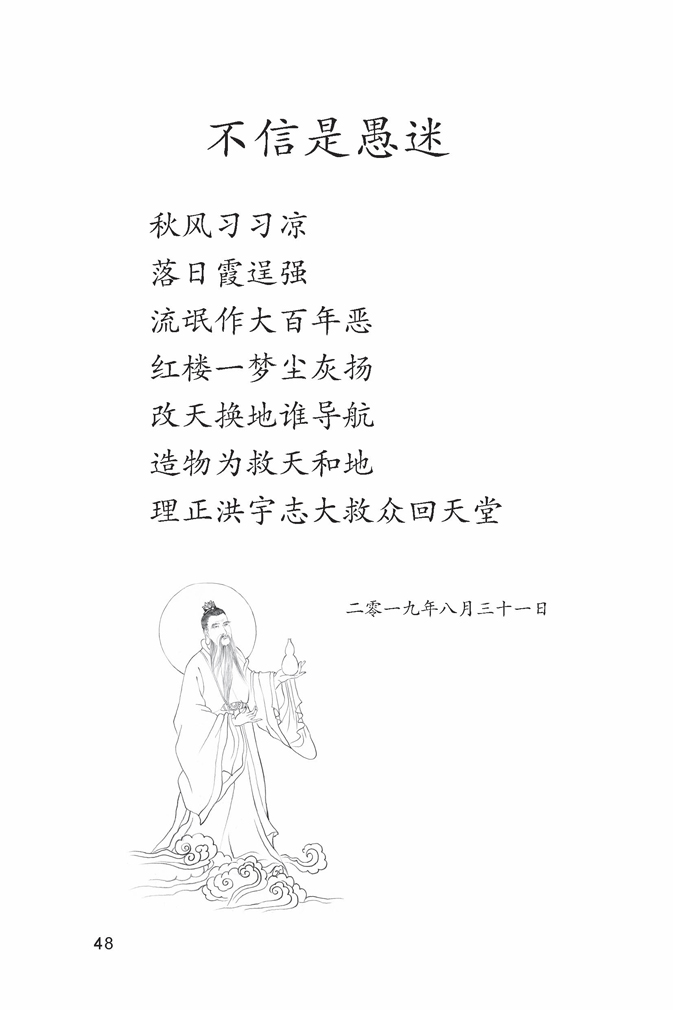 不信是愚迷
秋风习习凉
落日霞逞强
流氓作大百年恶
红楼一梦尘灰扬
改天换地谁导航
造物为救天和地
理正洪宇志大救众回天堂
二零一九年八月三十一日
48